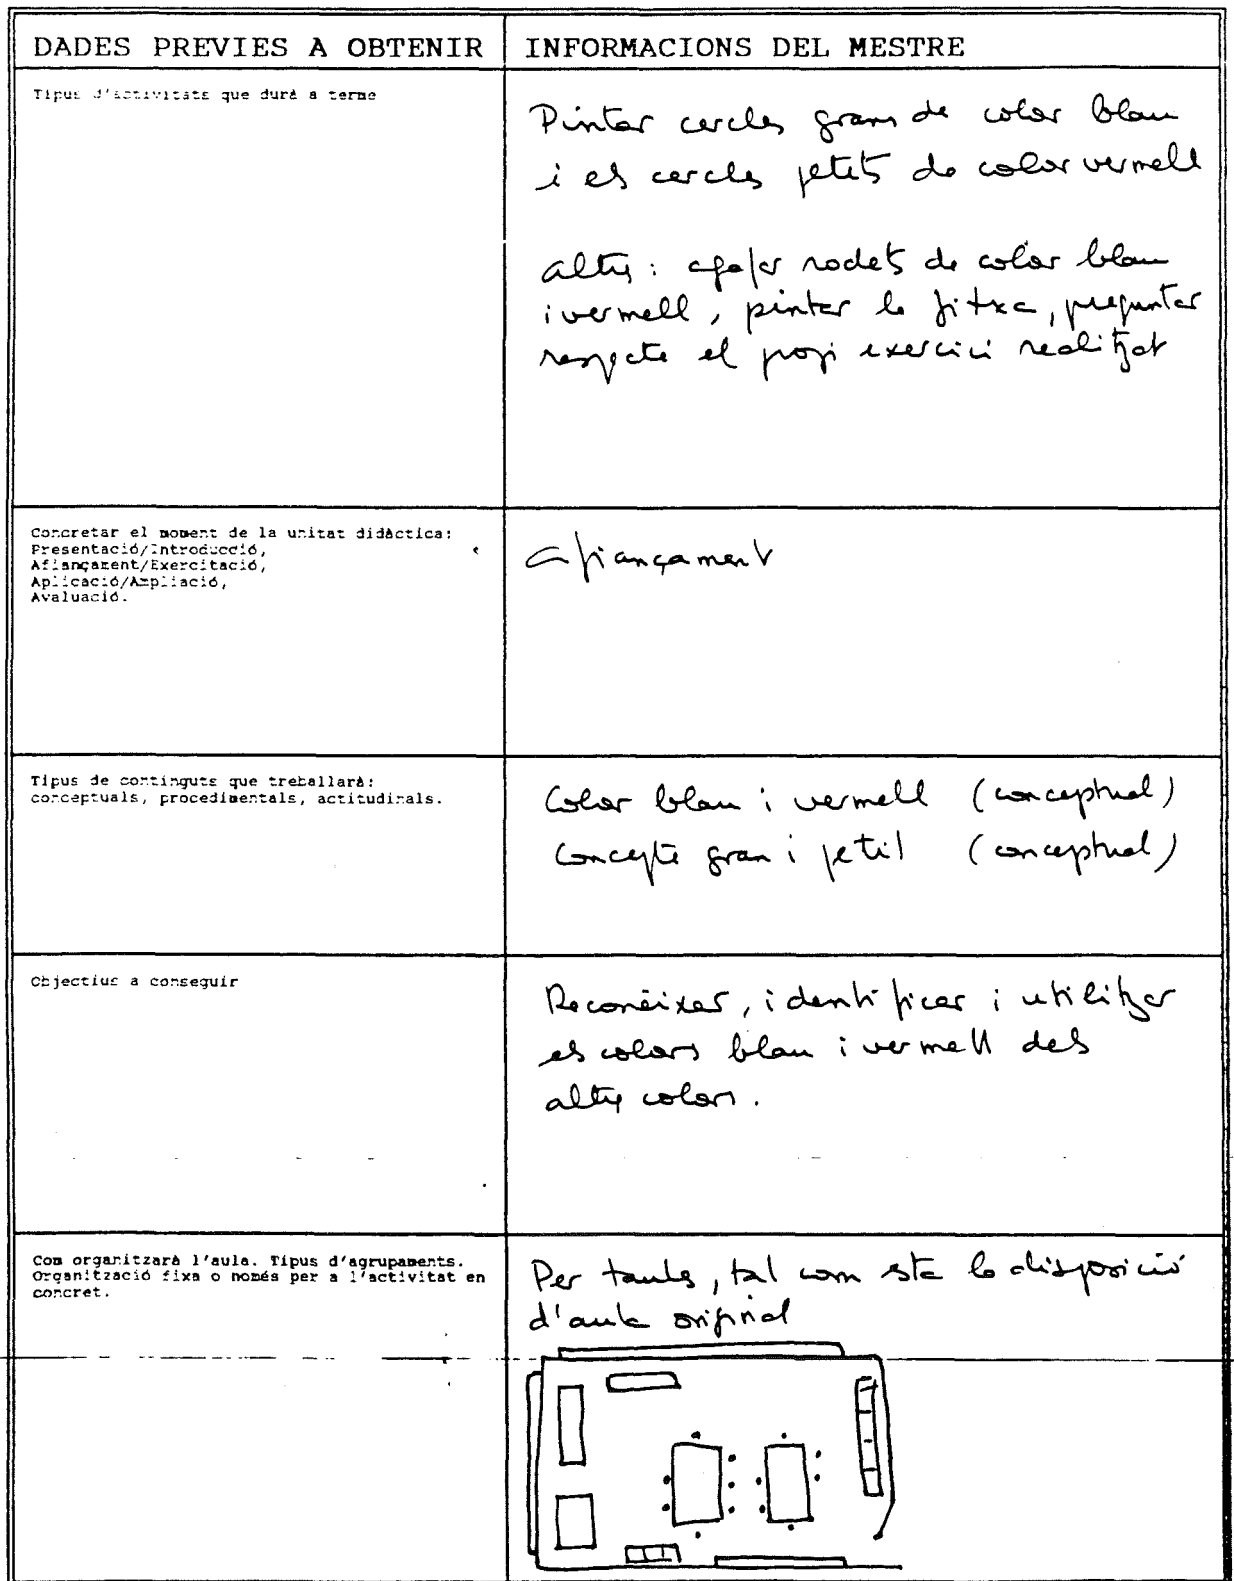 DADES PREVIES A OBTENIR
INFORMACIONS DEL MESTRE
Tipus d'activitats que durà a terme
Pintar cercles grans de color blau
i els cercles petits de color vermell
altres: agafar rodets de color blau
i vermell, pintar la fitxa, preguntar
respecte el propi exercici realitzat
Concretar el moment de la unitat didàctica:
Presentació/Introducció,
Afiançament/Exercitació,
Aplicació/Ampliació,
Avaluació.
Afiançament
Tipus de continguts que treballarà:
conceptuals, procedimentals, actitudinals.
Color blau i vermell (conceptual)
Concepte gran i petit (conceptual)
Objectius a conseguir
Reconèixer, identificar i utilitzar
els colors blau i vermell dels
altres colors.
Com organitzarà l'aula. Tipus d'agrupaments.
Organització fixa o només per a l'activitat en
concret.
Per taules, tal com sta la disposició
d'aula original